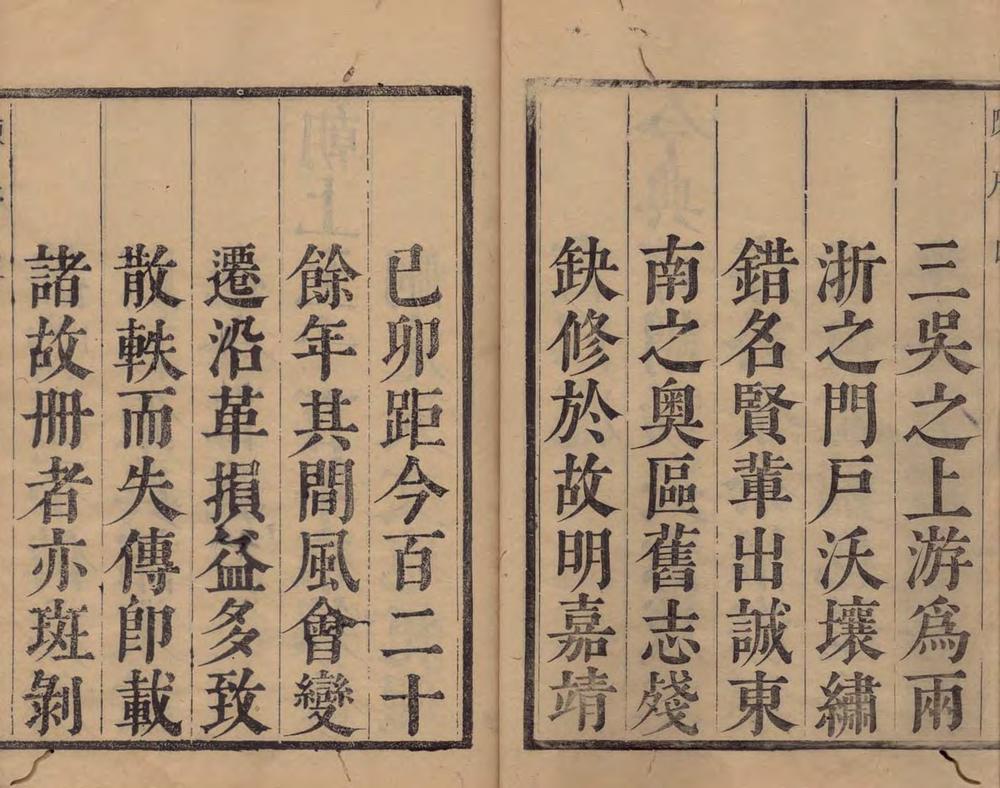 三吳之上游爲兩
浙之門戸沃壤繡
錯名賢輩出誠東
南之奧區舊志殘
缺修於故明嘉靖
已卯距今百二十
餘年其間風會變
遷沿革損益多致
散軼而失傳卽載
諸故冊者亦斑剝